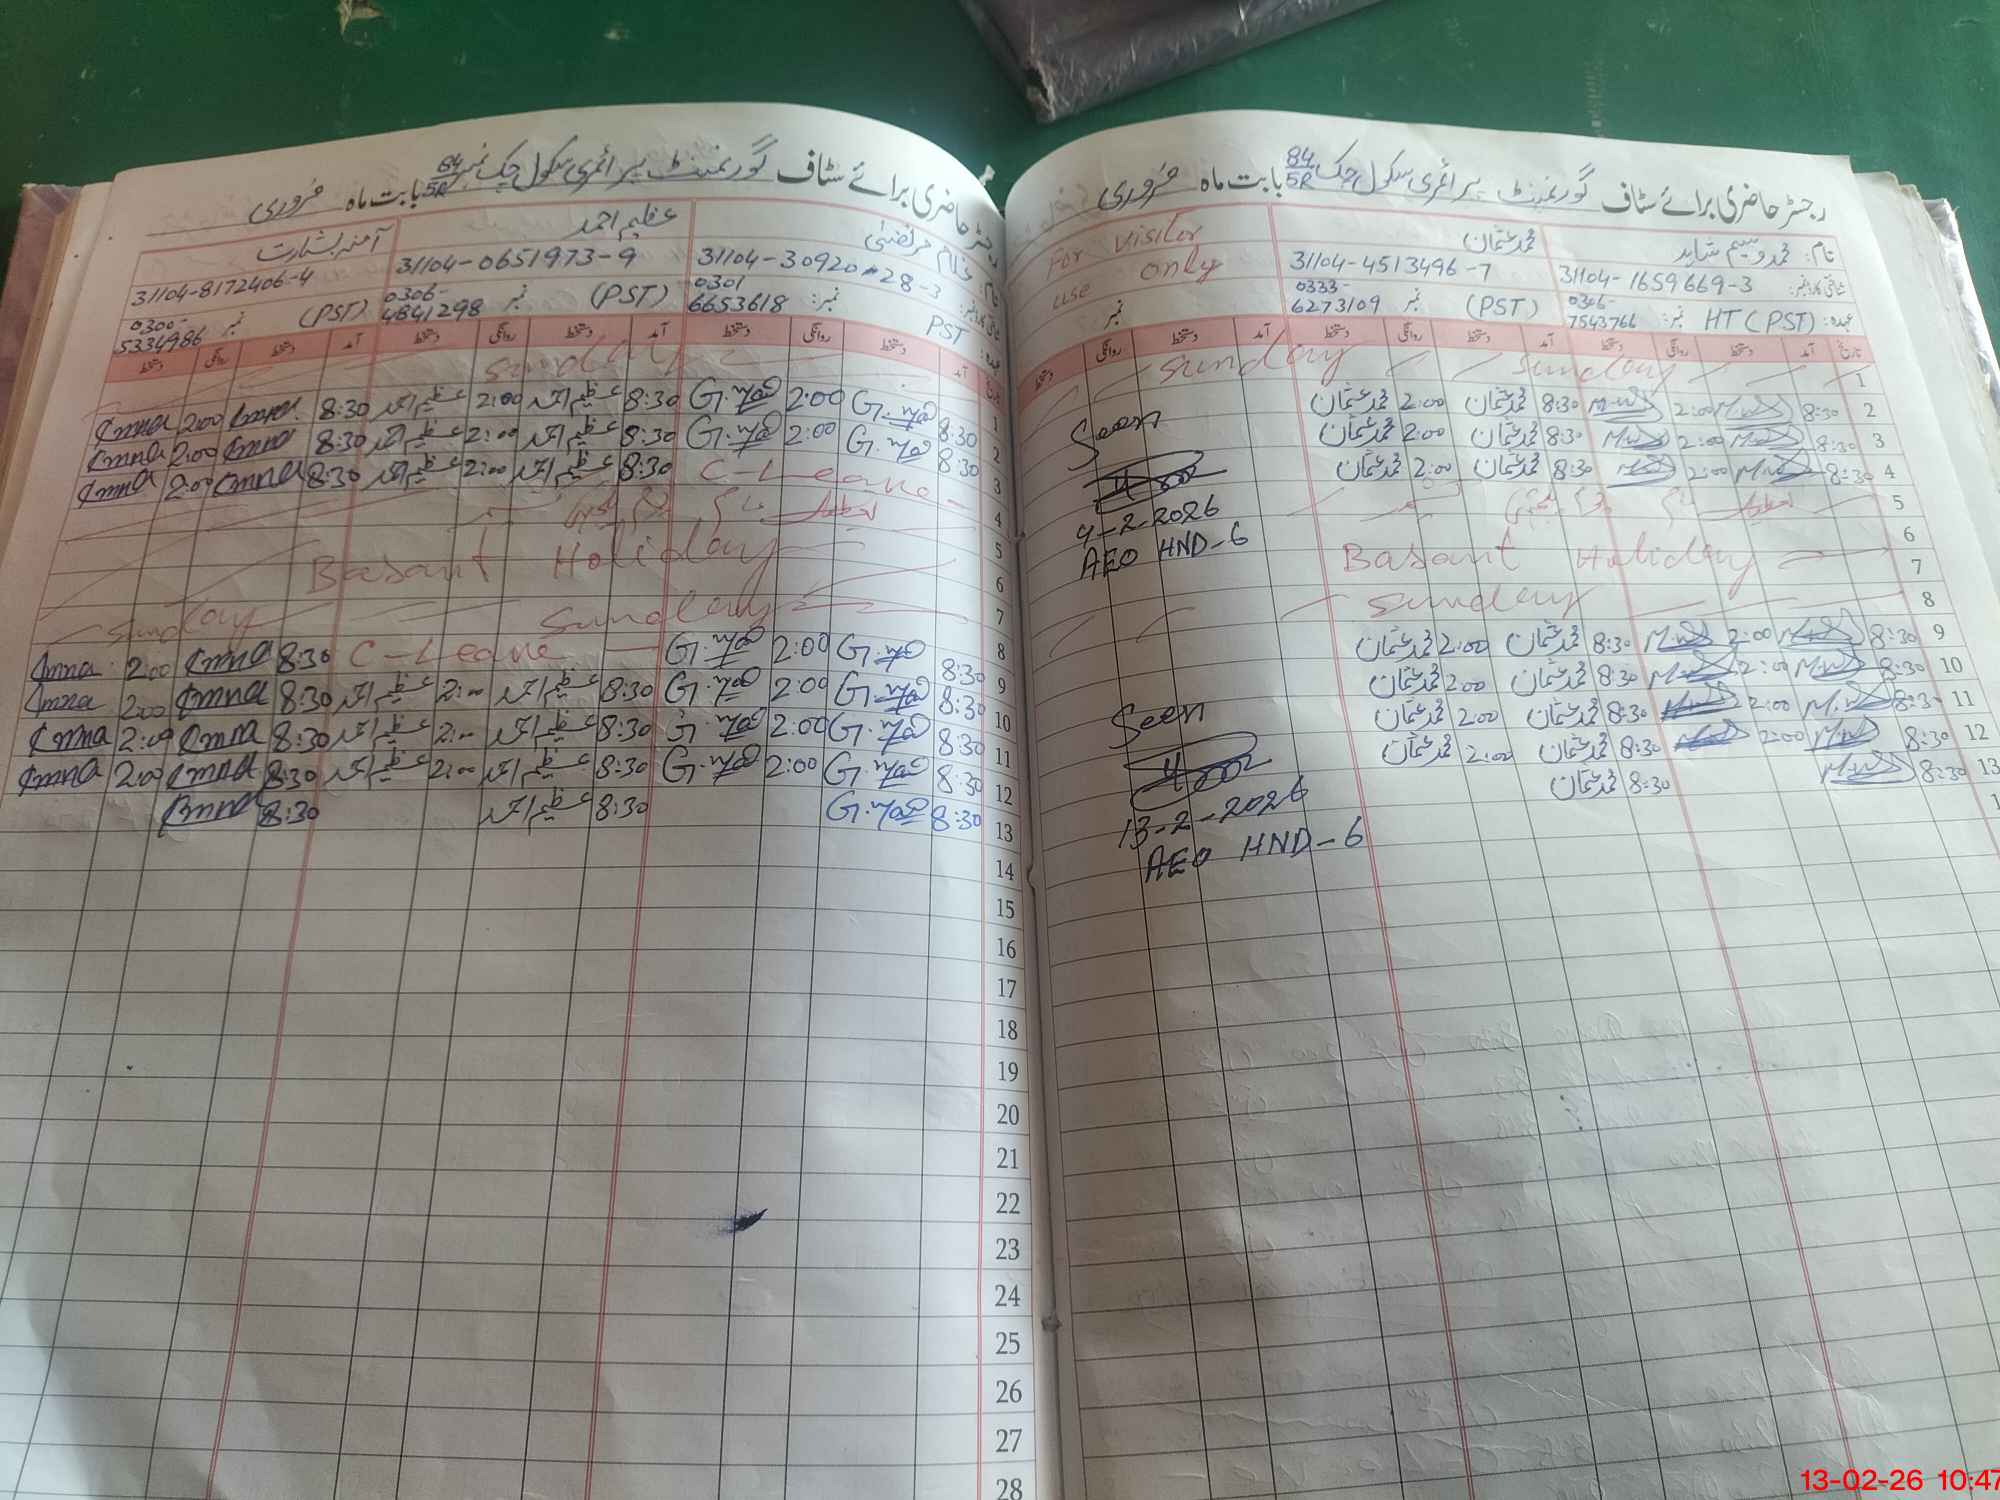 رجسٹر حاضری برائے سٹاف گورنمنٹ پرائمری سکول چک 84/5R بابت ماہ فروری
نام: محمد وسیم شاہد
محمد عثمان
For Visitor
شناختی کارڈ نمبر: 31104-1659669-3
31104-4513496-7
use only
عہدہ: HT (PST) نمبر: 0306-7543766
(PST) نمبر 0333-6273109
نمبر
تاریخ آمد دستخط روانگی دستخط آمد دستخط روانگی دستخط آمد دستخط روانگی دستخط
1 Sunday Sunday
2 8:30 2:00 8:30 محمد عثمان 2:00 محمد عثمان
3 8:30 2:00 8:30 محمد عثمان 2:00 محمد عثمان
4 8:30 2:00 8:30 محمد عثمان 2:00 محمد عثمان
5
6
7 Basant Holiday
8 Sunday
9 8:30 2:00 8:30 محمد عثمان 2:00 محمد عثمان
10 8:30 2:00 8:30 محمد عثمان 2:00 محمد عثمان
11 8:30 2:00 8:30 محمد عثمان 2:00 محمد عثمان
12 8:30 2:00 8:30 محمد عثمان 2:00 محمد عثمان
13 8:30 8:30 محمد عثمان
Seen
4-2-2026
AEO HND-6
Seen
13-2-2026
AEO HND-6
رجسٹر حاضری برائے سٹاف گورنمنٹ پرائمری سکول چک نمبر 84/5R بابت ماہ فروری
نام: غلام مرتضیٰ
عظیم احمد
آمنہ بشارت
31104-3092028-3
31104-0651973-9
31104-8172406-4
عہدہ: PST نمبر: 0301-6653618
(PST) نمبر 0306-4841298
(PST) نمبر 0300-5334986
تاریخ آمد دستخط روانگی دستخط آمد دستخط روانگی دستخط آمد دستخط روانگی دستخط
Sunday
1 8:30 2:00 8:30 عظیم احمد 2:00 عظیم احمد 8:30 Amna 2:00 Amna
2 8:30 2:00 8:30 عظیم احمد 2:00 عظیم احمد 8:30 Amna 2:00 Amna
3 C-Leave 8:30 عظیم احمد 2:00 عظیم احمد 8:30 Amna 2:00 Amna
4
5
6 Basant Holiday
7 Sunday Sunday
8 8:30 2:00 C-Leave 8:30 Amna 2:00 Amna
9 8:30 2:00 8:30 عظیم احمد 2:00 عظیم احمد 8:30 Amna 2:00 Amna
10 8:30 2:00 8:30 عظیم احمد 2:00 عظیم احمد 8:30 Amna 2:00 Amna
11 8:30 2:00 8:30 عظیم احمد 2:00 عظیم احمد 8:30 Amna 2:00 Amna
12 8:30 8:30 عظیم احمد 8:30 Amna
13
14
15
16
17
18
19
20
21
22
23
24
25
26
27
28
13-02-26 10:47